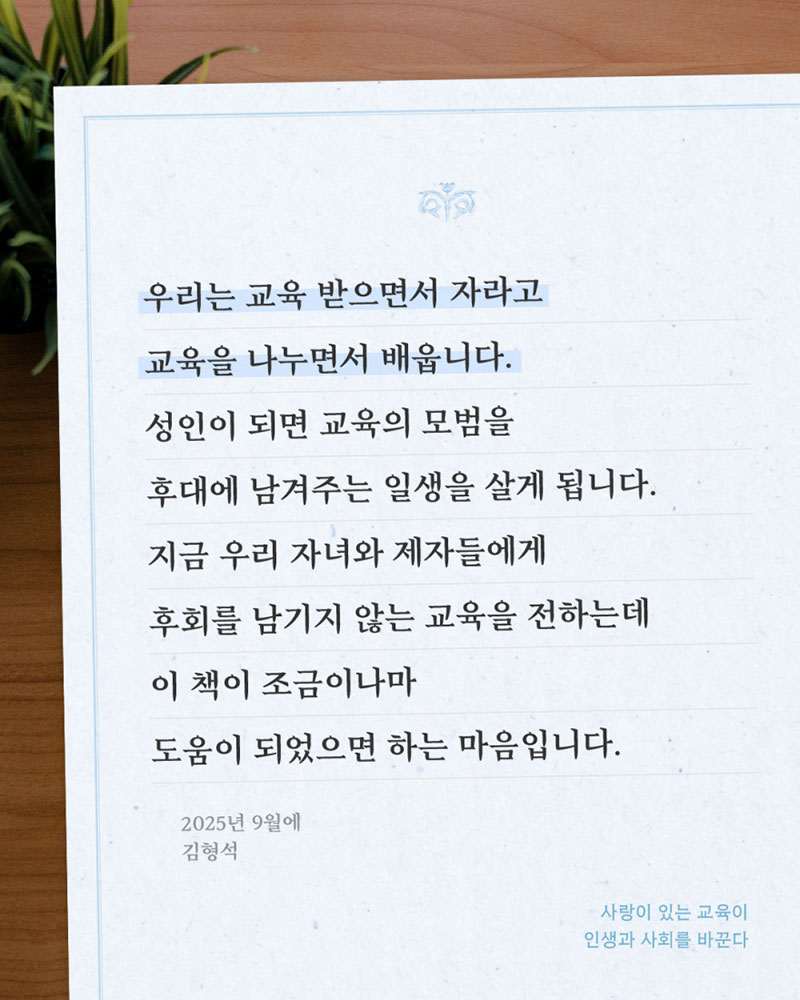 우리는 교육 받으면서 자라고
교육을 나누면서 배웁니다.
성인이 되면 교육의 모범을
후대에 남겨주는 일생을 살게 됩니다.
지금 우리 자녀와 제자들에게
후회를 남기지 않는 교육을 전하는데
이 책이 조금이나마
도움이 되었으면 하는 마음입니다.
2025년 9월에
김형석
사랑이 있는 교육이
인생과 사회를 바꾼다